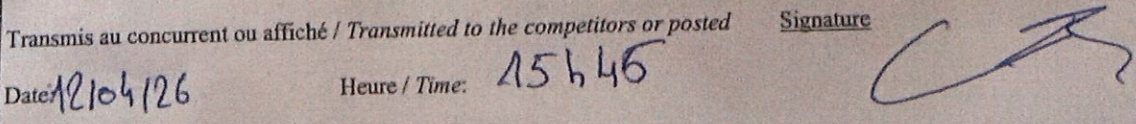 Transmis au concurrent ou affiché / Transmitted to the competitors or posted Signature
Date: 12/04/26 Heure / Time: 15h46